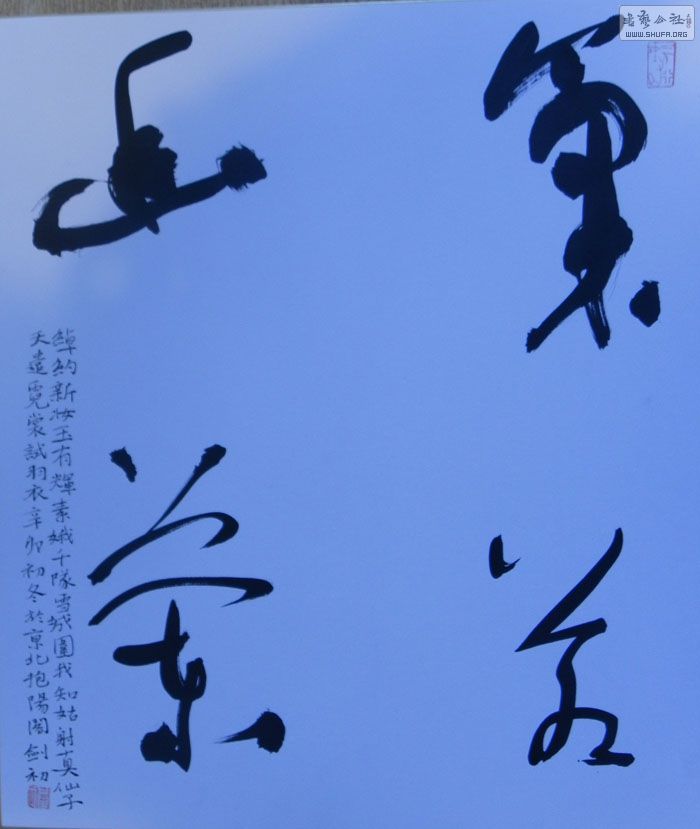 書藝公社
WWW.SHUFA.ORG
氣若
幽蘭
綽約新妝玉有輝素娥千隊雪成圍我知姑射真仙子
天遣霓裳試羽衣辛卯初冬於京北抱陽閣劍初